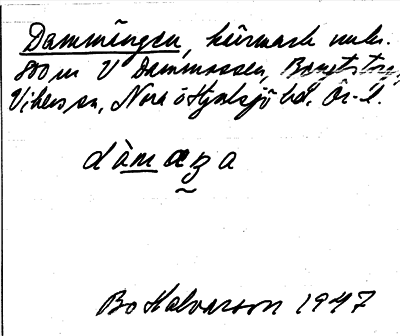 Dammängen, kärrmark
800 m V Dammossen,
Vikers sn, Nora o Hjulsjö bd. Ör. l.
dàmæŋa
Bo Halvarson 1947